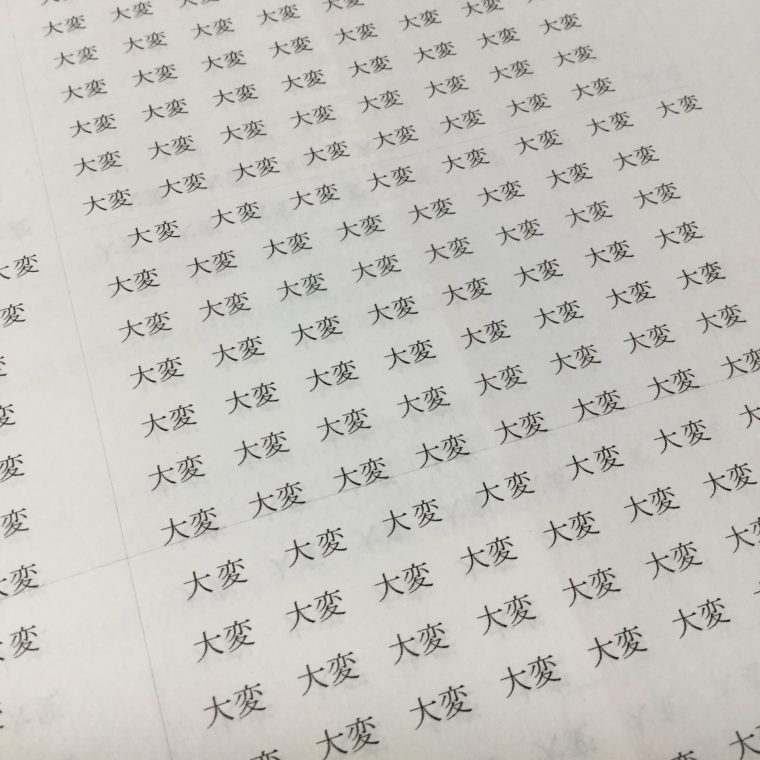 大変 大変
大変 大変 大変 大変 大変
大変 大変 大変 大変 大変 大変 大変
大変 大変 大変 大変 大変 大変 大変 大変
大変 大変 大変 大変 大変 大変 大変 大変
大変 大変 大変 大変 大変 大変 大変 大変
大変 大変 大変 大変 大変 大変 大変 大変 大変
変 大変 大変 大変 大変 大変 大変 大変 大変
大変 大変 大変 大変 大変 大変 大変 大変
変 大変 大変 大変 大変 大変 大変 大変 大変
変 大変 大変 大変 大変 大変 大変 大変 大変
変 大変 大変 大変 大変 大変 大変 大変 大変
大変 大変 大変 大変 大変 大変 大変 大変 大変
大変 大変 大変 大変 大変 大変 大変 大
大変 大変 大変 大変 大変 大変 大変
大変 大変 大変 大変 大変 大変 大変
大変 大変 大変 大変 大変